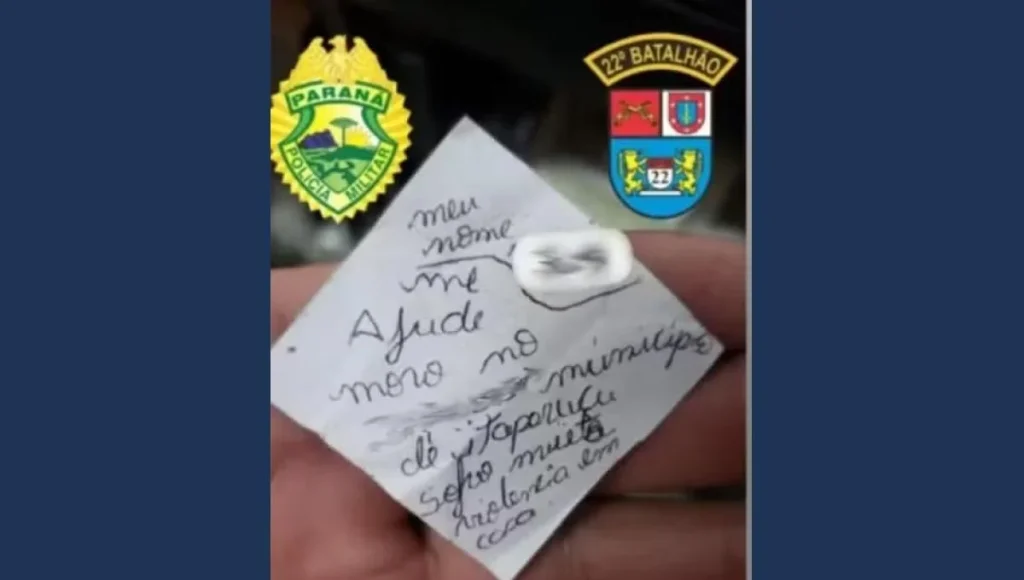 PARANÁ
POLÍCIA MILITAR
22º BATALHÃO
22
meu
nome,
me
Ajude
moro no
município
de itaperuçu
sofro muita
violencia em
casa